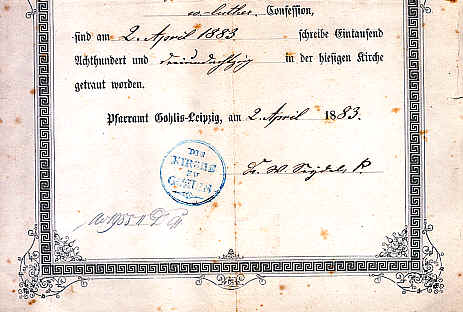 ev-luther. Confession,
sind am 2. April 1883. schreibe Eintausend
Achthundert und dreiundachtzig in der hiesigen Kirche
getraut worden.
Pfarramt Gohlis-Leipzig, am 2. April 1883.
DIE
KIRCHE
ZU
GOHLIS
Dr. W. Seydel, P.